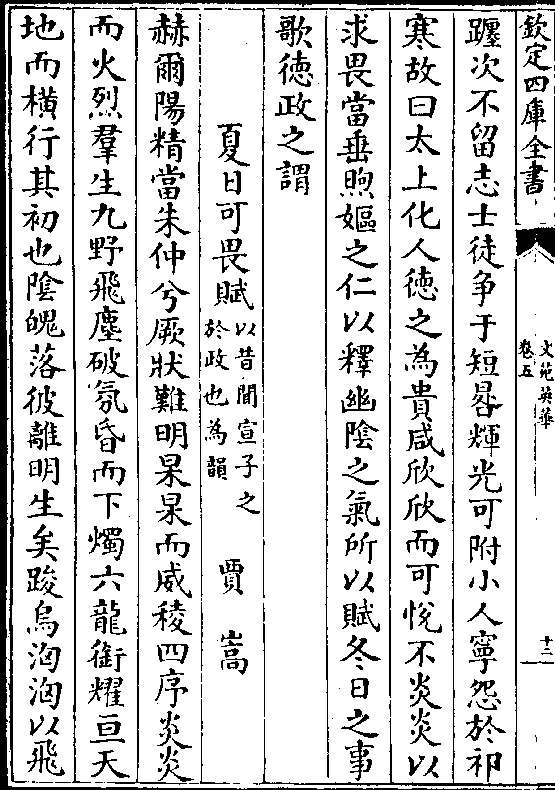 欽定四庫全書
文苑英華
卷五
十三
躔次不留志士徒争于短晷輝光可附小人寧怨於祁
寒故曰太上化人徳之為貴咸欣欣而可悅不炎炎以
求畏當垂煦嫗之仁以釋幽陰之氣所以賦冬日之事
歌徳政之謂
夏日可畏賦以昔聞宣子之於政也為韻 賈嵩
赫爾陽精當朱仲兮厥狀難明杲杲而威稜四序炎炎
而火烈羣生九野飛塵破氛昏而下燭六龍銜耀亘天
地而横行其初也陰魄落彼離明生矣踆烏洶洶以飛